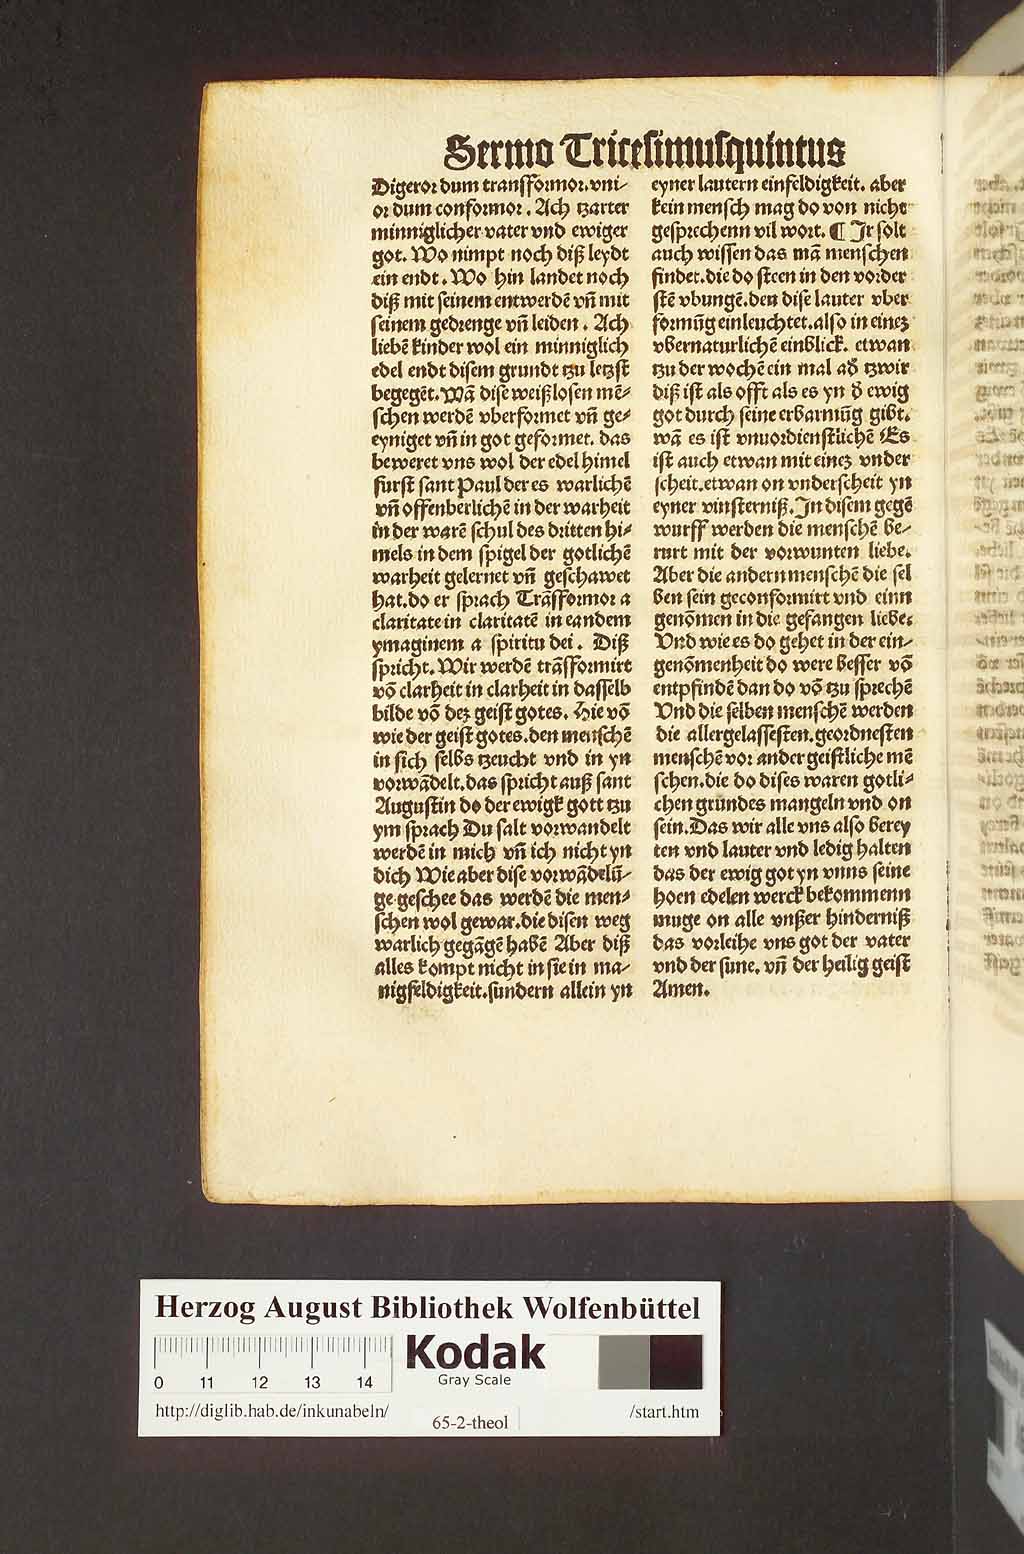 Sermo Tricesimusquintus
Digeror dum transfformor. vni-
or dum conformor. Ach tzarter
minniglicher vater vnd ewiger
got. Wo nimpt noch diß leydt
ein endt. Wo hin landet noch
diß mit seinem entwerdē vñ mit
seinem gedrenge vñ leiden. Ach
liebē kinder wol ein minniglich
edel endt disem grundt tzu letzst
begegēt. Wā dise weißlosen mē-
schen werdē vberformet vñ ge-
eyniget vñ in got geformet. das
beweret vns wol der edel himel
furst sant Paul der es warlichē
vñ offenberlichē in der warheit
in der warē schul des dritten hi-
mels in dem spigel der gotlichē
warheit gelernet vñ geschawet
hat. do er sprach Trāsformor a
claritate in claritatē in eandem
ymaginem a spiritu dei. Diß
spricht. Wir werdē trāsformirt
vō clarheit in clarheit in dasselb
bilde vō deꝫ geist gotes. Hie vō
wie der geist gotes. den menschē
in sich selbs tzeucht vnd in yn
vorwādelt. das spricht auß sant
Augustin do der ewigk gott tzu
ym sprach Du salt vorwandelt
werdē in mich vñ ich nicht yn
dich Wie aber dise vorwādelū-
ge geschee das werdē die men-
schen wol gewar. die disen weg
warlich gegāgē habē Aber diß
alles kompt nicht in sie in ma-
nigfeldigkeit. sundern allein yn
eyner lautern einfeldigkeit. aber
kein mensch mag do von nicht
gesprechenn vil wort. ¶ Jr solt
auch wissen das mā menschen
findet. die do steen in den vorder
stē vbungē. den dise lauter vber
formūg einleuchtet. also in eineꝫ
vbernaturlichē einblick. etwan
tzu der wochē ein mal ad̄ tzwir
diß ist als offt als es yn d̄ ewig
got durch seine erbarmūg gibt.
wā es ist vnuordienstlichē Es
ist auch etwan mit eineꝫ vnder
scheit. etwan on vnderscheit yn
eyner vinsterniß. Jn disem gegē
wurff werden die menschē be-
rurt mit der vorwunten liebe.
Aber die andern menschē die sel
ben sein geconformirt vnd einn
genōmen in die gefangen liebe.
Vnd wie es do gehet in der ein-
genōmenheit do were besser vō
entpfindē dan do vō tzu sprechē
Vnd die selben menschē werden
die allergelassesten. geordnesten
menschē vor ander geistliche mē
schen. die do dises waren gotli-
chen grundes mangeln vnd on
sein. Das wir alle vns also berey
ten vnd lauter vnd ledig halten
das der ewig got yn vnns seine
hoen edelen werck bekommenn
muge on alle vnßer hinderniß
das vorleihe vns got der vater
vnd der sune. vñ der heilig geist
Amen.
Herzog August Bibliothek Wolfenbüttel
0 11 12 13 14
Kodak
Gray Scale
http://diglib.hab.de/inkunabeln/
65-2-theol
/start.htm